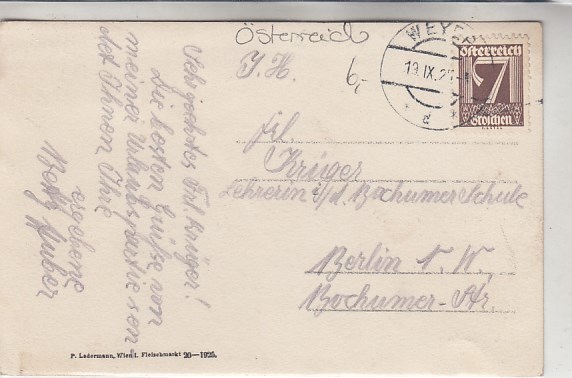 Österreich
I. H.
6,-
WEYER
19.IX.2
d
Österreich
7
Groschen
Frl.
Krüger
Lehrerin a/d. Bochumer Schule
Berlin N. W.
Bochumer-Str.
Sehr geehrtes Frl. Krüger!
Die besten Grüße von
meiner Urlaubspartie sen-
det Ihnen Ihre
ergebene
Betty Huber
P. Ledermann, Wien I. Fleischmarkt 20—1925.